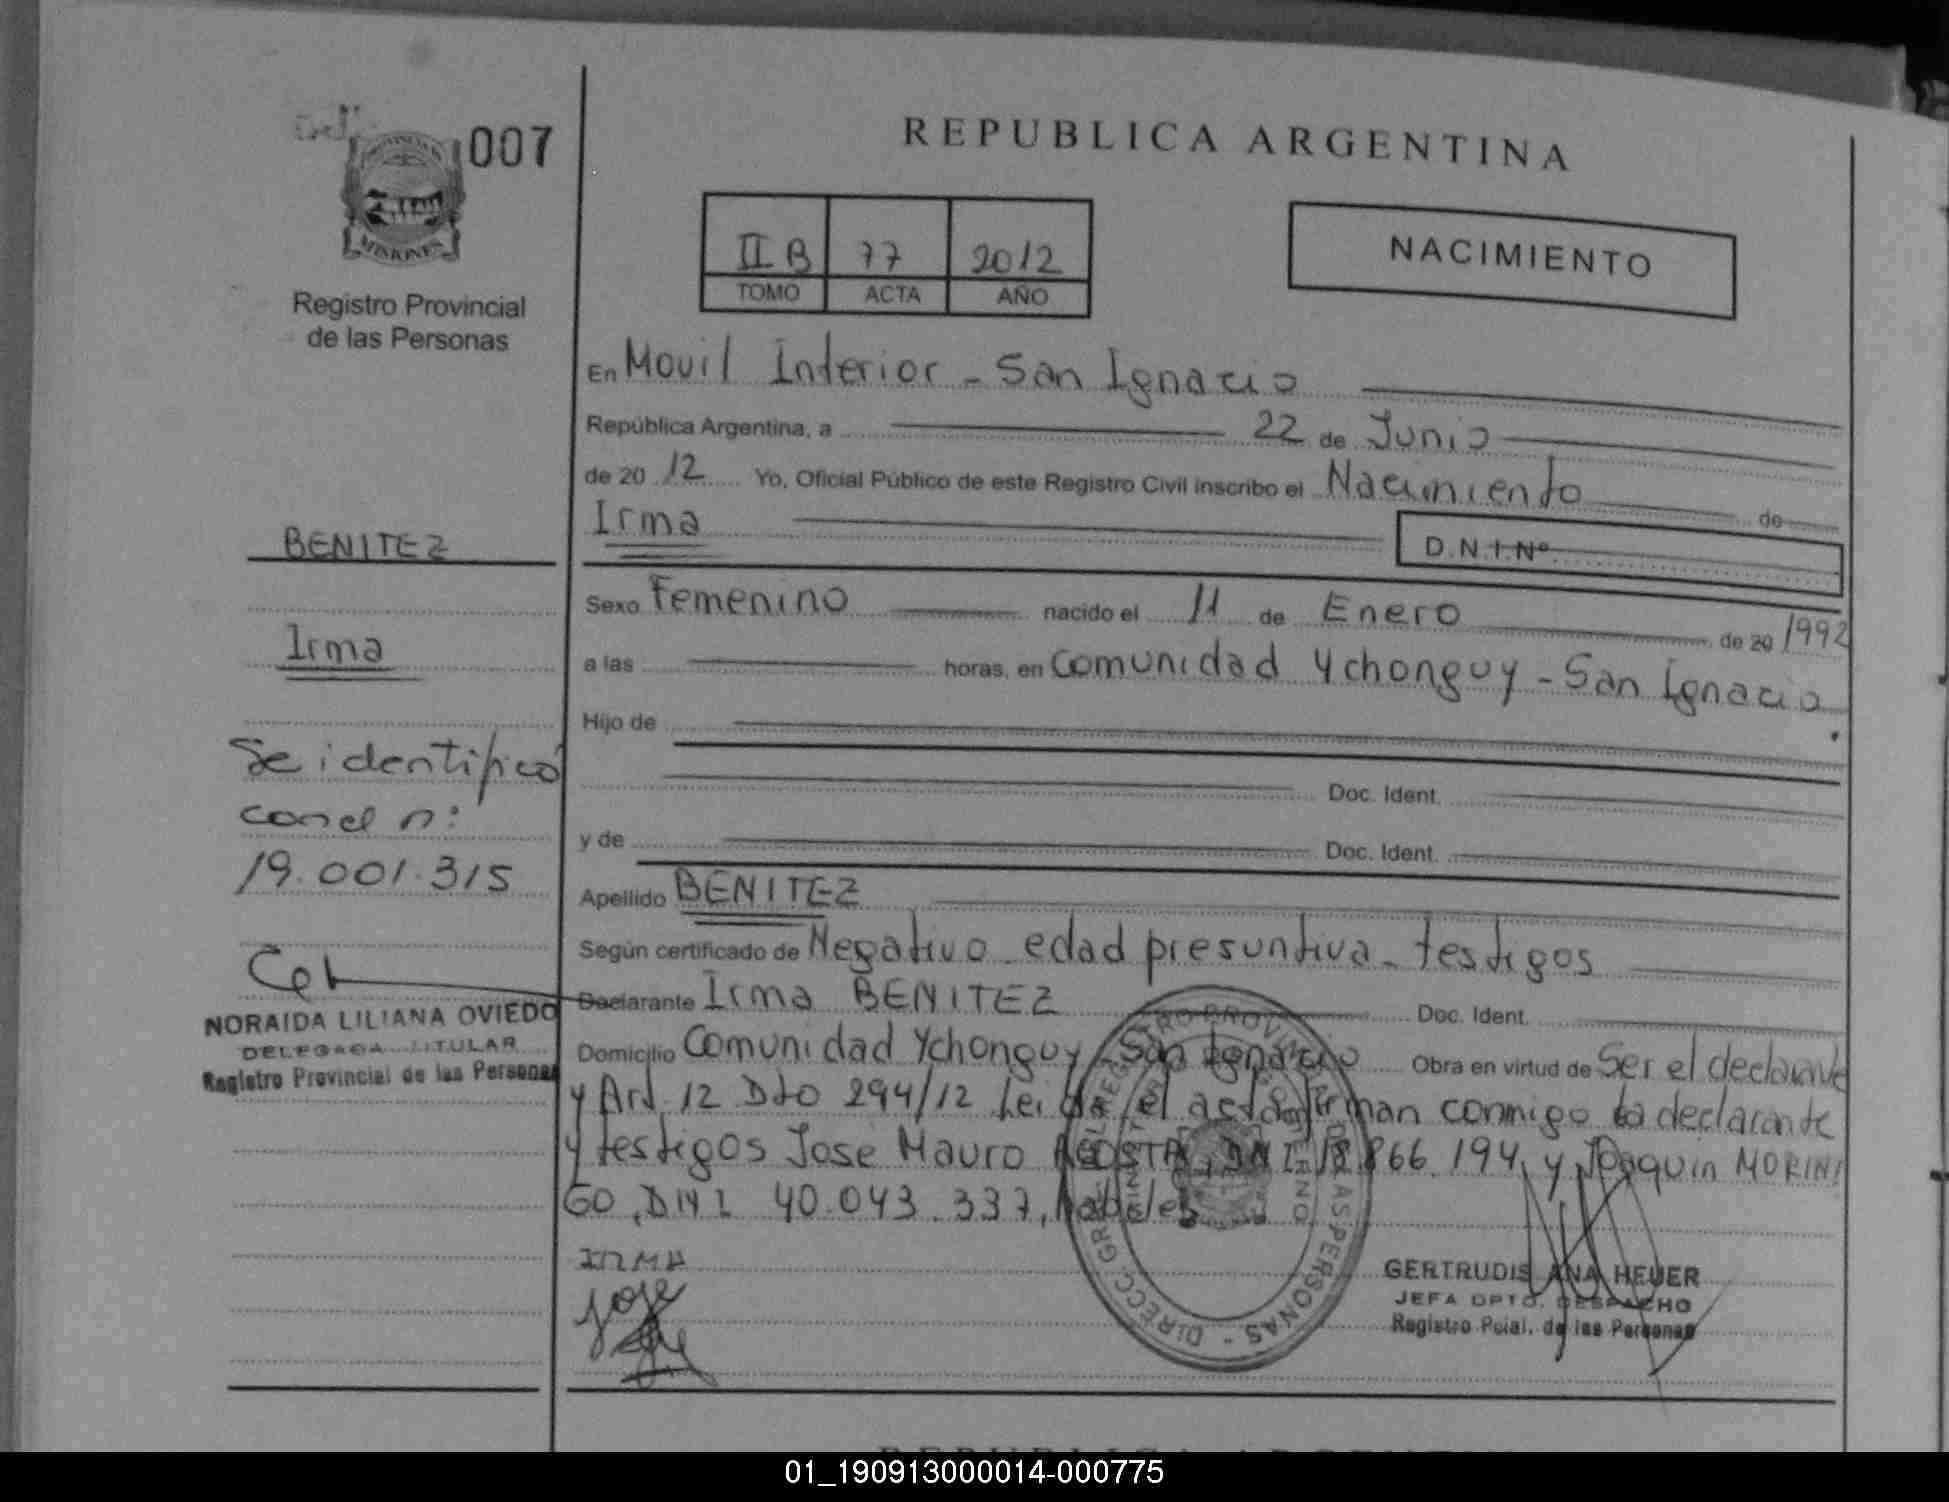 007
PROVINCIA DE
MISIONES
Registro Provincial
de las Personas
BENITEZ
Irma
Se identificó
con el n:
19.001.315
NORAIDA LILIANA OVIEDO
DELEGADA TITULAR
Registro Provincial de las Personas
REPUBLICA ARGENTINA
II B 77 2012
TOMO ACTA AÑO
NACIMIENTO
En Movil Interior - San Ignacio
República Argentina, a 22 de Junio
de 2012 Yo, Oficial Público de este Registro Civil inscribo el Nacimiento de
Irma D.N.I.Nº
Sexo Femenino nacido el 11 de Enero de 20 1992
a las horas, en Comunidad Ychonguy - San Ignacio.
Hijo de
Doc. Ident.
y de Doc. Ident.
Apellido BENITEZ
Según certificado de Negativo - edad presuntiva - testigos
Declarante Irma BENITEZ Doc. Ident.
Domicilio Comunidad Ychonguy - San Ignacio Obra en virtud de Ser el declarante
y Art. 12 Dto 294/12 Leida el acta firman conmigo la declarante
y testigos José Mauro ACOSTA, DNI 18.866.194, y Joaquin MORINI
GO, DNI 40.043.337, habiles
IRMA
Jose
GERTRUDIS ANA HEUER
JEFA DPTO. DESPACHO
Registro Pcial. de las Personas
01_190913000014-000775